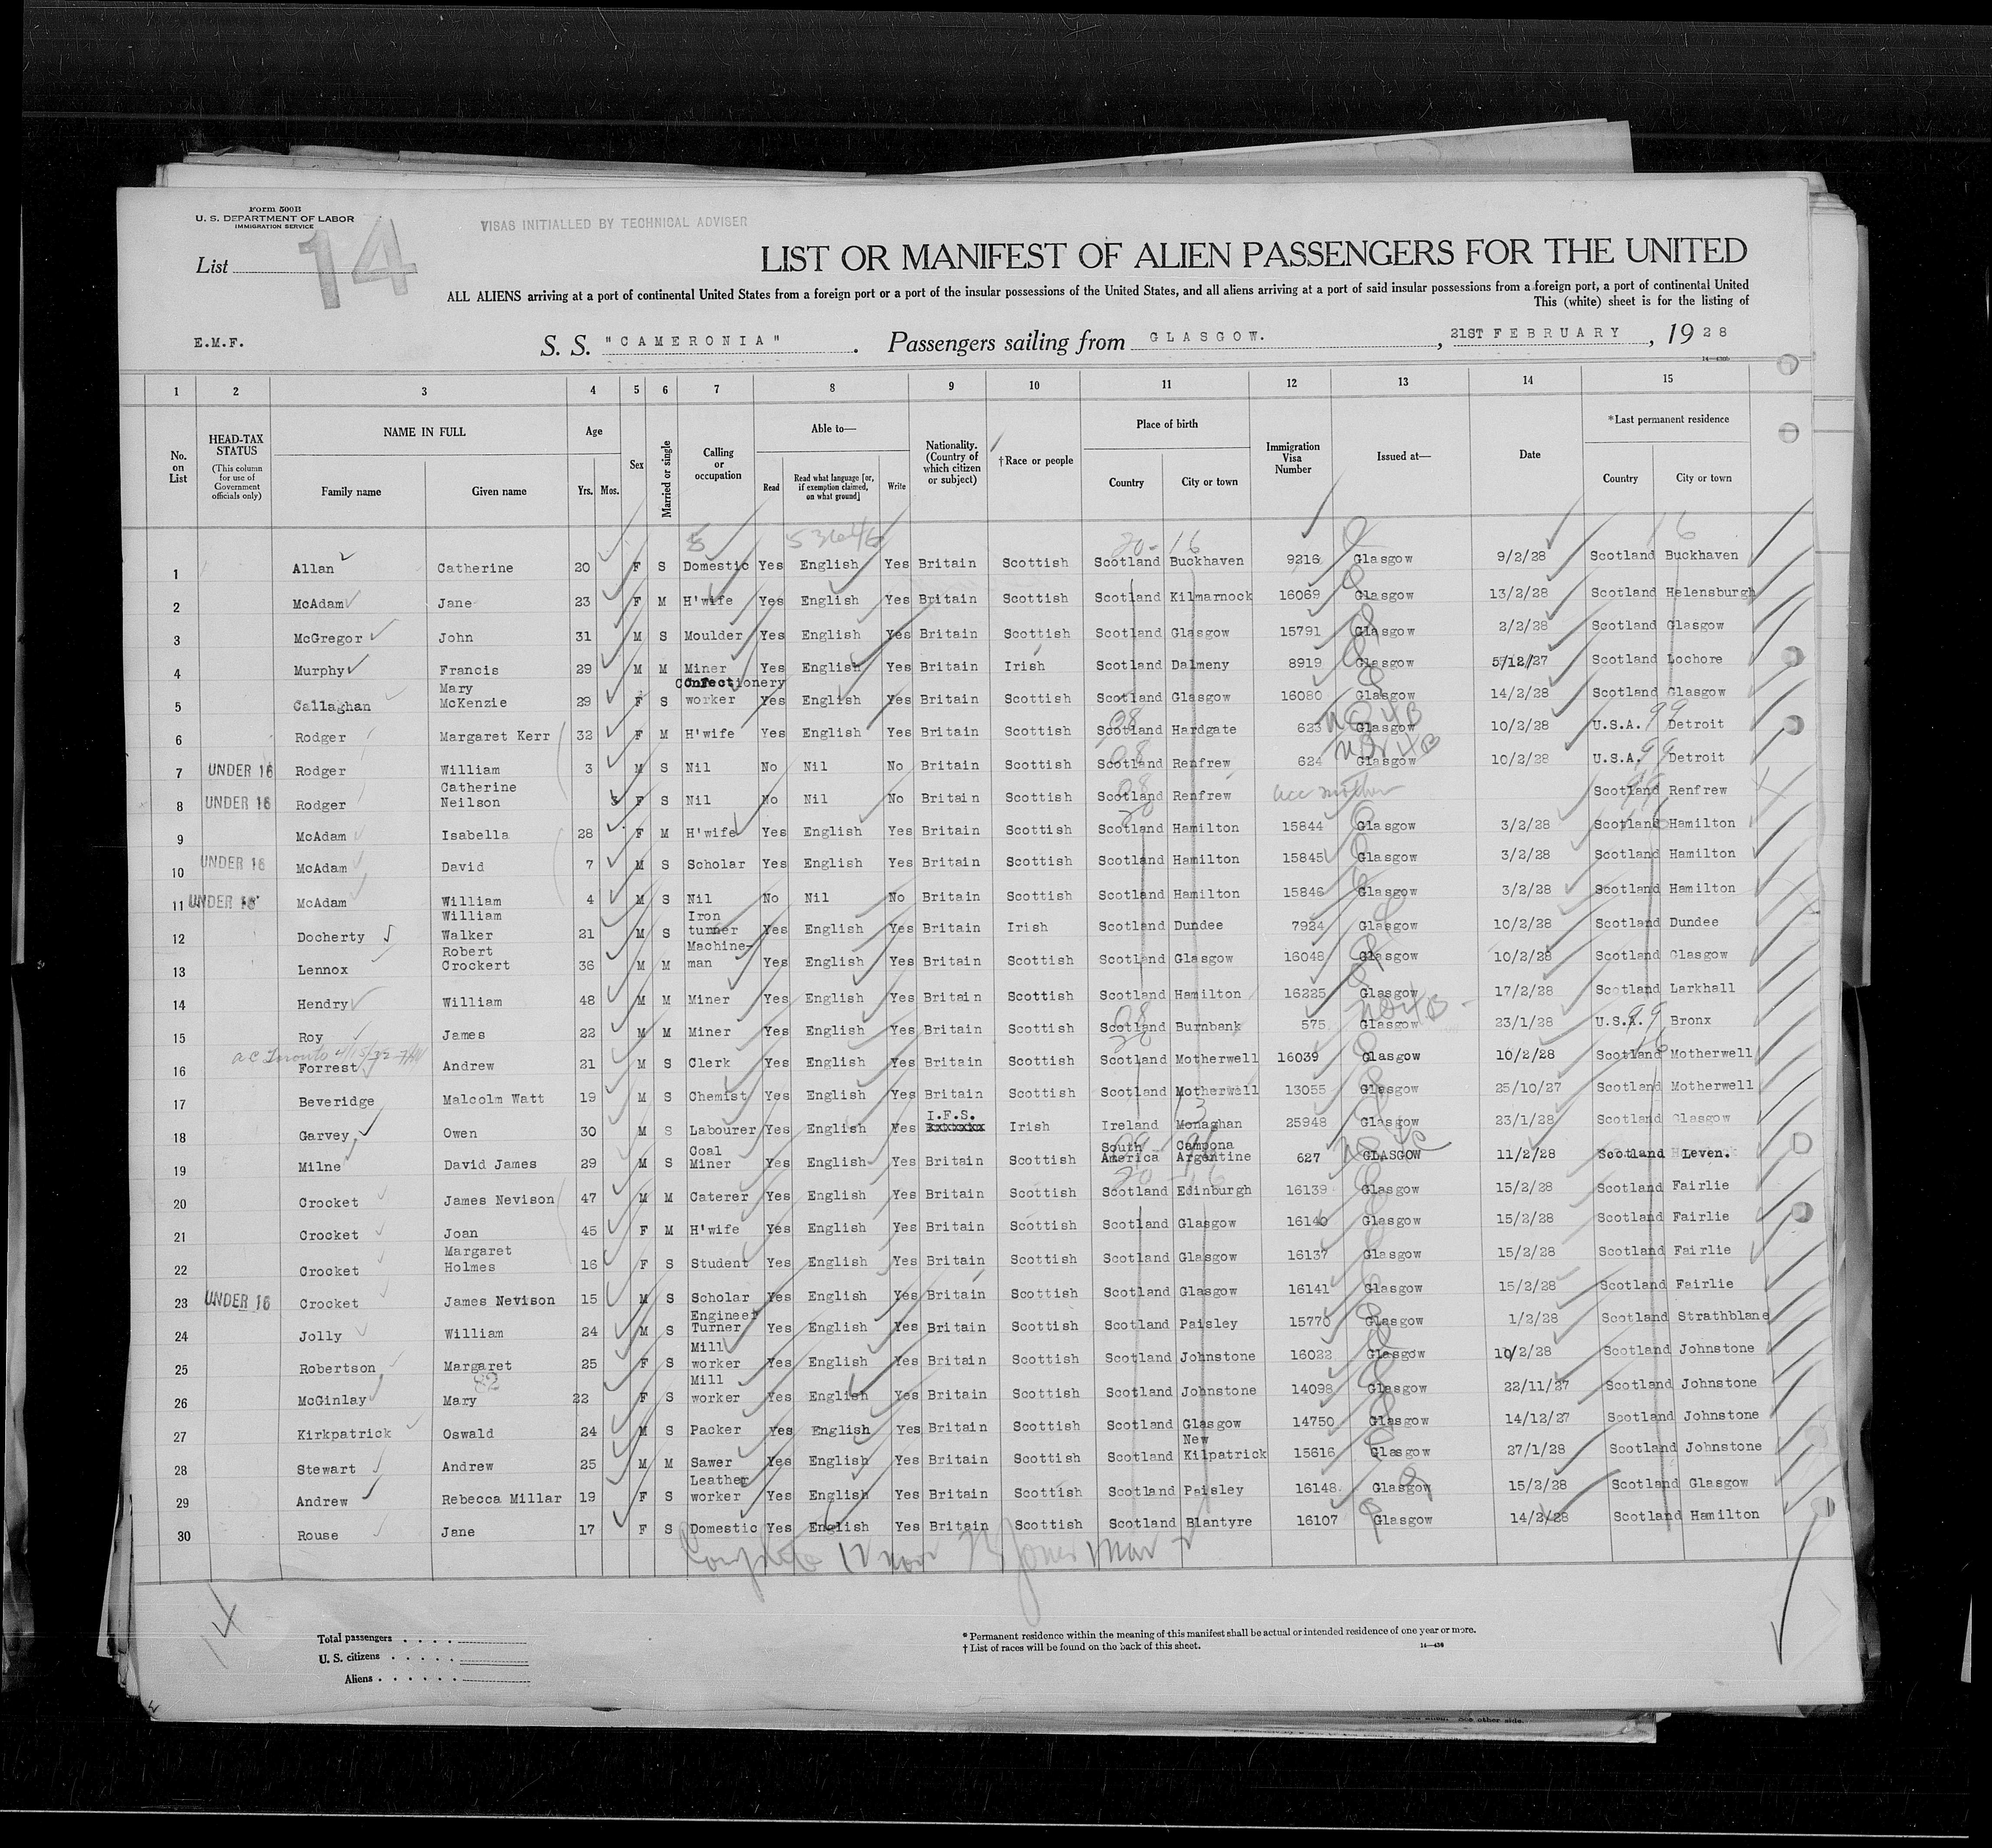 Form 500B
U. S. DEPARTMENT OF LABOR
IMMIGRATION SERVICE
VISAS INITIALLED BY TECHNICAL ADVISER
List 14
LIST OR MANIFEST OF ALIEN PASSENGERS FOR THE UNITED
ALL ALIENS arriving at a port of continental United States from a foreign port or a port of the insular possessions of the United States, and all aliens arriving at a port of said insular possessions from a foreign port, a port of continental United
This (white) sheet is for the listing of
E.M.F. S. S. "CAMERONIA" . Passengers sailing from GLASGOW. , 21ST FEBRUARY , 1928
14—4360
1 2 3 4 5 6 7 8 9 10 11 12 13 14 15
No. on List HEAD-TAX STATUS (This column for use of Government officials only) NAME IN FULL Family name Given name Age Yrs. Mos. Sex Married or single Calling or occupation Able to— Read Read what language [or, if exemption claimed, on what ground] Write Nationality. (Country of which citizen or subject) †Race or people Place of birth Country City or town Immigration Visa Number Issued at— Date *Last permanent residence Country City or town
5 20-16 16
1 Allan Catherine 20 F S Domestic Yes English Yes Britain Scottish Scotland Buckhaven 9216 Glasgow 9/2/28 Scotland Buckhaven
2 McAdam Jane 23 F M H'wife Yes English Yes Britain Scottish Scotland Kilmarnock 16069 Glasgow 13/2/28 Scotland Helensburgh
3 McGregor John 31 M S Moulder Yes English Yes Britain Scottish Scotland Glasgow 15791 Glasgow 2/2/28 Scotland Glasgow
4 Murphy Francis 29 M M Miner Yes English Yes Britain Irish Scotland Dalmeny 8919 Glasgow 5/12/27 Scotland Lochore
5 Callaghan Mary McKenzie 29 F S Confectionery worker Yes English Yes Britain Scottish Scotland Glasgow 16080 Glasgow 14/2/28 Scotland Glasgow
6 Rodger Margaret Kerr 32 F M H'wife Yes English Yes Britain Scottish Scotland Hardgate 623 Glasgow 10/2/28 U.S.A. 99 Detroit
7 UNDER 16 Rodger William 3 M S Nil No Nil No Britain Scottish Scotland Renfrew 624 Glasgow 10/2/28 U.S.A. 99 Detroit
8 UNDER 16 Rodger Catherine Neilson F S Nil No Nil No Britain Scottish Scotland Renfrew acc mother Scotland Renfrew
9 McAdam Isabella 28 F M H'wife Yes English Yes Britain Scottish Scotland Hamilton 15844 Glasgow 3/2/28 Scotland Hamilton
10 UNDER 16 McAdam David 7 M S Scholar Yes English Yes Britain Scottish Scotland Hamilton 15845 Glasgow 3/2/28 Scotland Hamilton
11 UNDER 16 McAdam William 4 M S Nil No Nil No Britain Scottish Scotland Hamilton 15846 Glasgow 3/2/28 Scotland Hamilton
12 Docherty William Walker 21 M S Iron turner Yes English Yes Britain Irish Scotland Dundee 7924 Glasgow 10/2/28 Scotland Dundee
13 Lennox Robert Crockert 36 M M Machine-man Yes English Yes Britain Scottish Scotland Glasgow 16048 Glasgow 10/2/28 Scotland Glasgow
14 Hendry William 48 M M Miner Yes English Yes Britain Scottish Scotland Hamilton 16225 Glasgow 17/2/28 Scotland Larkhall
15 Roy James 22 M M Miner Yes English Yes Britain Scottish Scotland Burnbank 575 Glasgow 23/1/28 U.S.A. 99 Bronx
16 Forrest Andrew 21 M S Clerk Yes English Yes Britain Scottish Scotland Motherwell 16039 Glasgow 10/2/28 Scotland Motherwell
17 Beveridge Malcolm Watt 19 M S Chemist Yes English Yes Britain Scottish Scotland Motherwell 13055 Glasgow 25/10/27 Scotland Motherwell
18 Garvey Owen 30 M S Labourer Yes English Yes I.F.S. Irish Ireland Monaghan 25948 Glasgow 23/1/28 Scotland Glasgow
19 Milne David James 29 M S Coal Miner Yes English Yes Britain Scottish South America Campona Argentine 627 GLASGOW 11/2/28 Scotland Leven.
20 Crocket James Nevison 47 M M Caterer Yes English Yes Britain Scottish Scotland Edinburgh 16139 Glasgow 15/2/28 Scotland Fairlie
21 Crocket Joan 45 F M H'wife Yes English Yes Britain Scottish Scotland Glasgow 16140 Glasgow 15/2/28 Scotland Fairlie
22 Crocket Margaret Holmes 16 F S Student Yes English Yes Britain Scottish Scotland Glasgow 16137 Glasgow 15/2/28 Scotland Fairlie
23 UNDER 16 Crocket James Nevison 15 M S Scholar Yes English Yes Britain Scottish Scotland Glasgow 16141 Glasgow 15/2/28 Scotland Fairlie
24 Jolly William 24 M S Engineer Turner Yes English Yes Britain Scottish Scotland Paisley 15770 Glasgow 1/2/28 Scotland Strathblane
25 Robertson Margaret 25 F S Mill worker Yes English Yes Britain Scottish Scotland Johnstone 16022 Glasgow 10/2/28 Scotland Johnstone
26 McGinlay Mary 22 F S Mill worker Yes English Yes Britain Scottish Scotland Johnstone 14098 Glasgow 22/11/27 Scotland Johnstone
27 Kirkpatrick Oswald 24 M S Packer Yes English Yes Britain Scottish Scotland Glasgow 14750 Glasgow 14/12/27 Scotland Johnstone
28 Stewart Andrew 25 M M Sawer Yes English Yes Britain Scottish Scotland New Kilpatrick 15616 Glasgow 27/1/28 Scotland Johnstone
29 Andrew Rebecca Millar 19 F S Leather worker Yes English Yes Britain Scottish Scotland Paisley 16148 Glasgow 15/2/28 Scotland Glasgow
30 Rouse Jane 17 F S Domestic Yes English Yes Britain Scottish Scotland Blantyre 16107 Glasgow 14/2/28 Scotland Hamilton
14
Total passengers
U. S. citizens
Aliens
* Permanent residence within the meaning of this manifest shall be actual or intended residence of one year or more.
† List of races will be found on the back of this sheet.